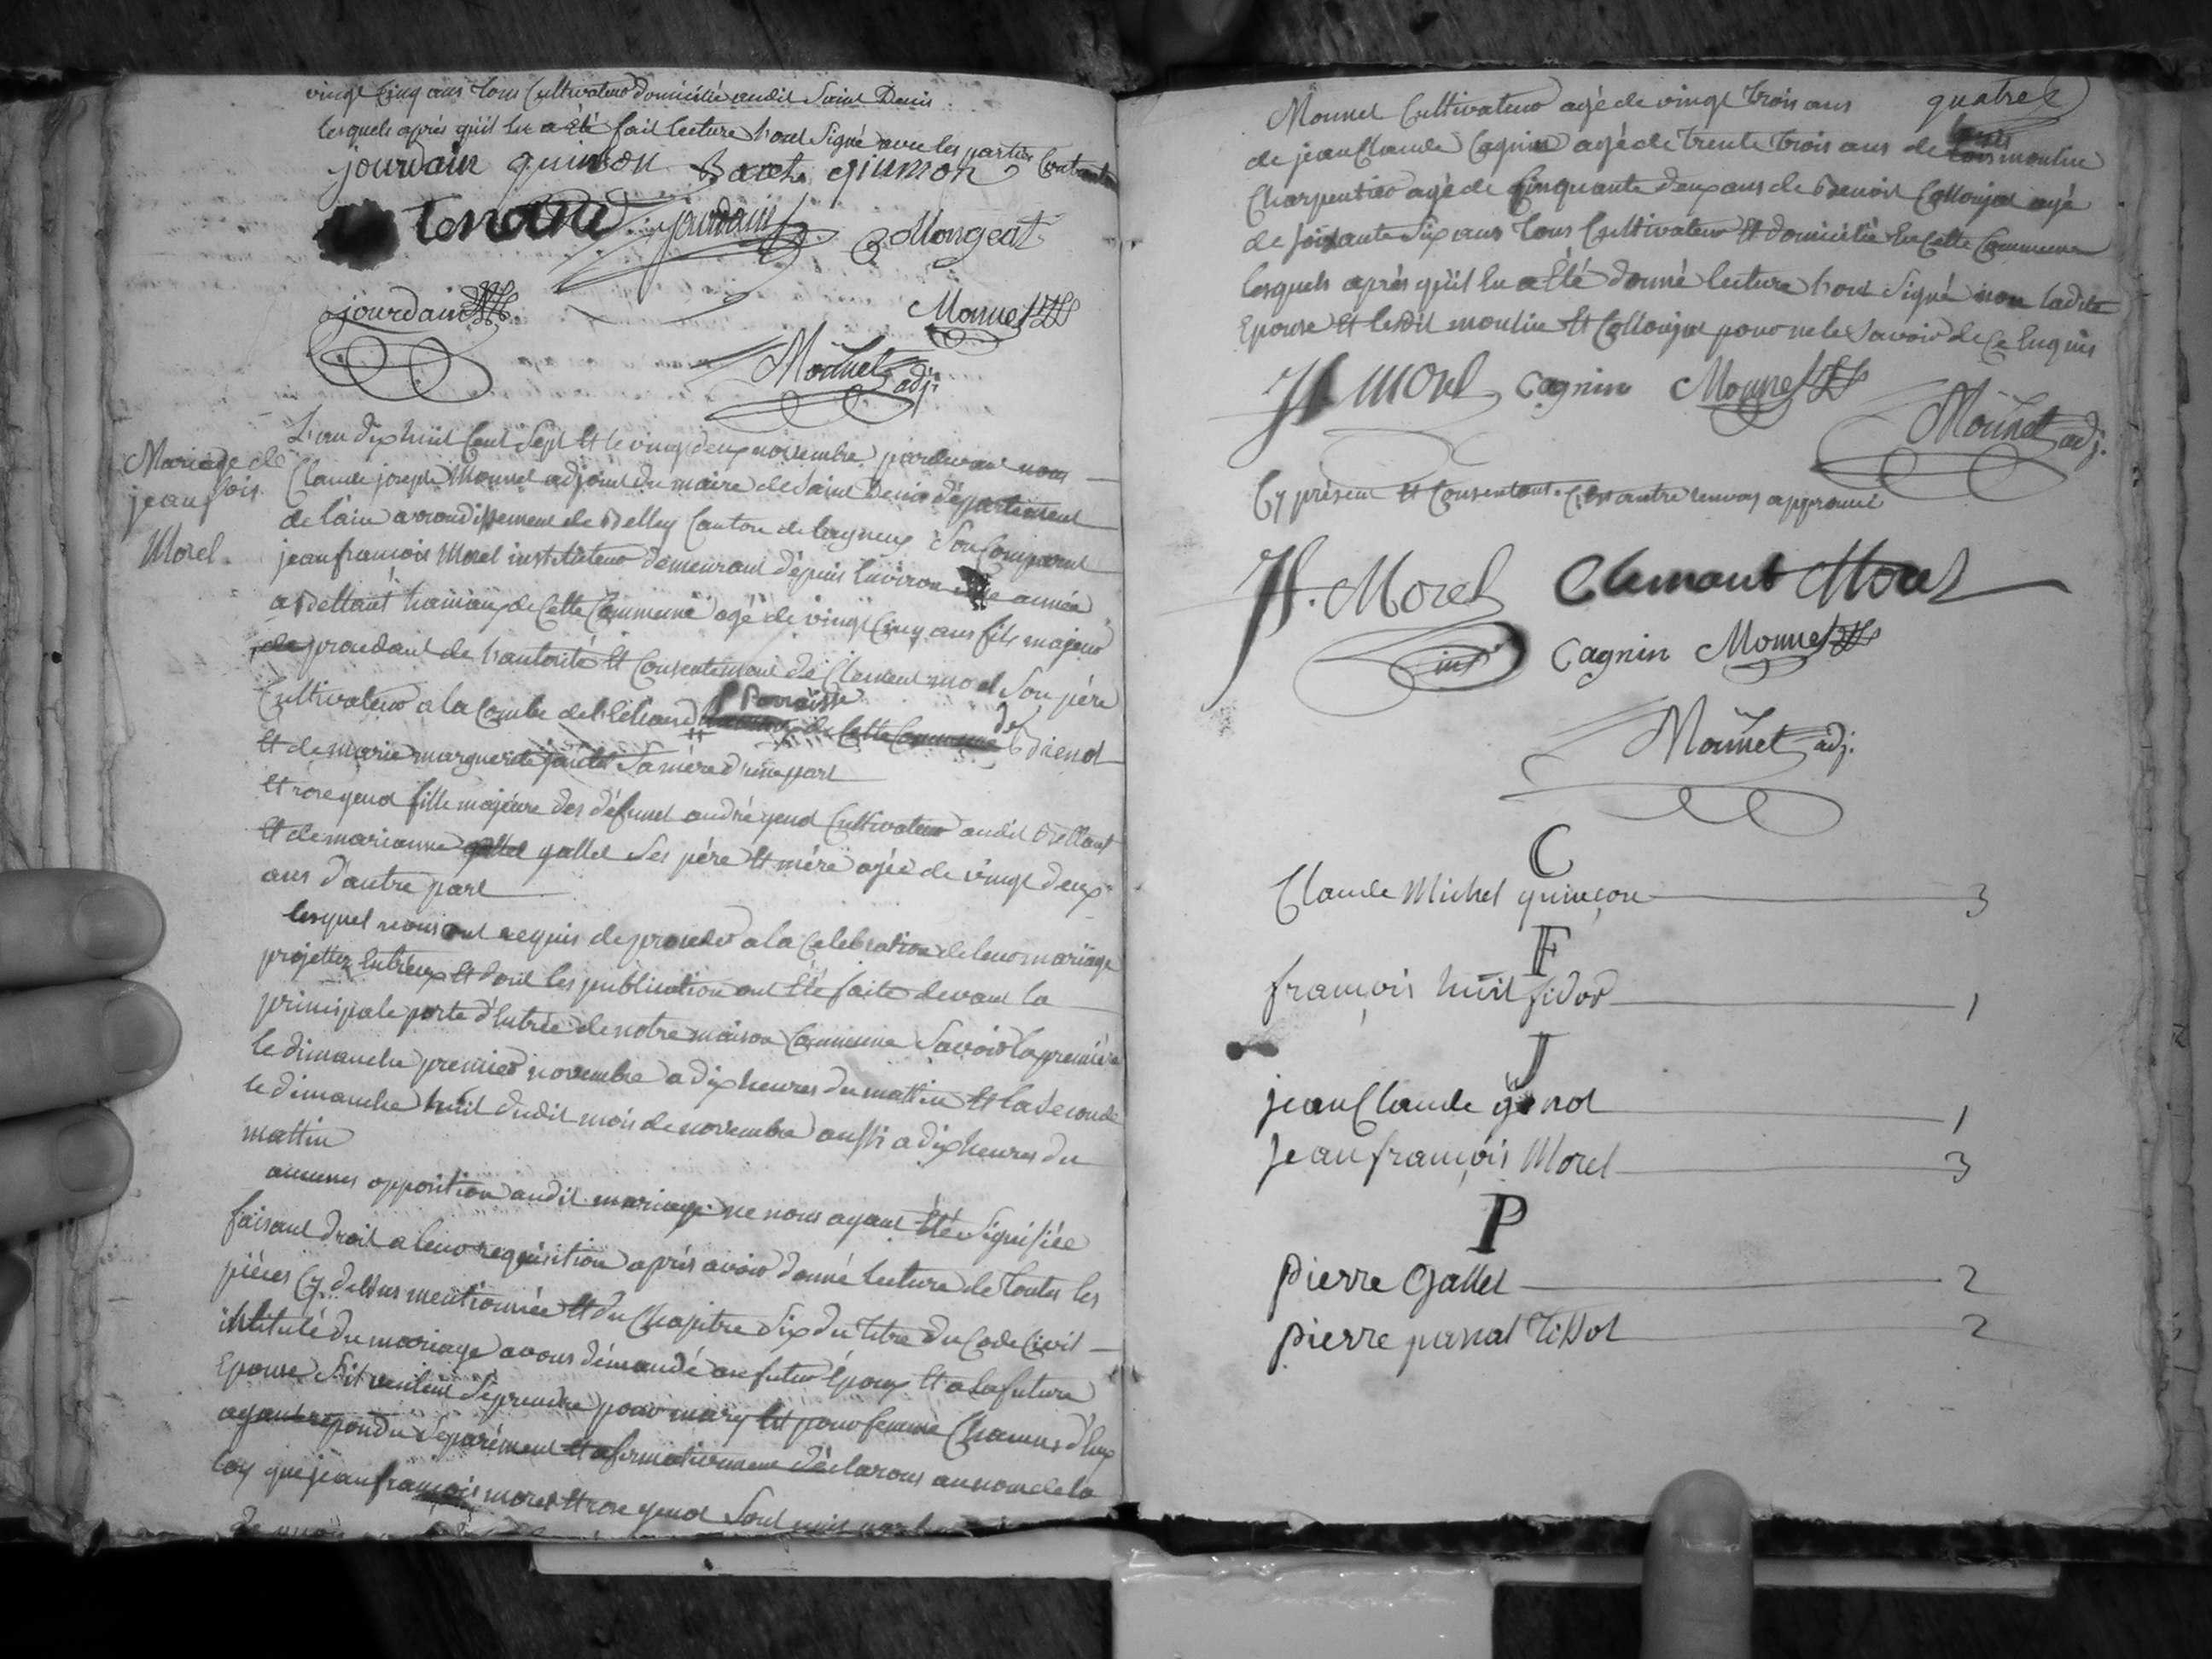 vingt Cinq ans tous Cultivateur domicilié audit Saint Denis
lesquels après qu'il lu a Eté fait lecture h'ont Signé avec les parties Contract
jourdain quinson Barthe giumon
tenand jourdain Mongeat
jourdain Monnet
Monnet adj:
L'an dix huit Cent Sept Et le vingt deux novembre pardevant nous
Mariage de
jean fois.
Morel.
Claude joseph Monnet adjoint du maire de Saint Denis département
de l'ain arondissement de Belley Canton de lagneux Son Comparut
jean françois Morel instituteur demeurant dépuis Environ une année
a Bettant hamaux de Cette Commune agé de vingt Cinq ans fils majeur
procedant de h'autorité Et Consentement de Clement morel Son père
Cultivateur a la Combe de Paroisse de Brenod
Et de marie marguerite Sa mère d'une part
Et rose genod fille majeure des défunt andré genod Cultivateur audit Bettant
Et de marianne gallet Ses père Et mère agée de vingt deux
ans d'autre part
lesquel nous ont requis de proceder a la Celebration de leur mariage
projettez Entr'eux Et dont les publication ont Eté faite devant la
principale porte d'Entrée de notre maison Commune Savoir la première
le dimanche premier novembre a dix heures du mattin Et la Seconde
le dimanche huit dudit mois de novembre aussi a dix heures du
mattin
aucunes opposition audit mariage ne nous ayant Eté Signifiée
faisant droit a leur requisition après avoir donné lecture de toutes les
pièces Cy dessus mentionnée Et du Chapitre Six du titre du Code Civil
intitulé du mariage avons démandé au futur Epoux Et a la future
Epouse S'il veulent Se prendre pour mary Et pour femme Chacuns d'Eux
ayant repondu Separément Et afirmativement déclarons au nom de la
loy que jean françois morel Et rose genod Sont unis
quatre
Monnet Cultivateur agé de vingt trois ans
de jean Claude Cagnin agé de trente trois ans de louis moulin
Charpentier agé de Cinquante deux ans de Benoit Collonjon agé
de Soixante Six ans tous Cultivateur Et domicilié En Cette Commune
lesquels après qu'il lu a Eté donné lecture h'ont Signé non ladite
Epouse Et lesdit moulin Et Collonjon pour ne le Savoir de Ce Enquis
Jf morel Cagnin Monnet
Monnet adj:
Cy présent Et Consentant. Cest autre renvoy approuvé
Jf. Morel Clemant Morel
inst Cagnin Monnet
Monnet adj:
C
Claude Michel quinçon 3
F
françois huit fidor 1
J
jean Claude genod 1
Jean françois Morel 3
P
pierre Gallet 2
pierre pascal Tissot 2